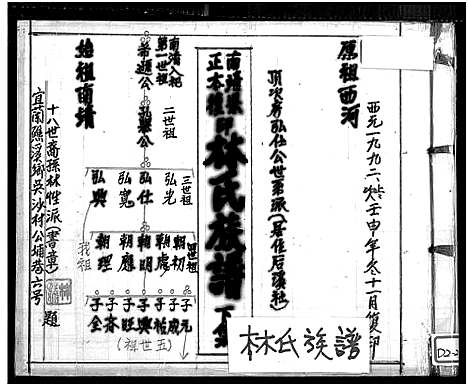 原祖西河
西元一九九二歲壬申年冬十一月復印
頂次房弘仕公世系派(居住后溪社)
南靖
正本
林氏族譜 下集
林氏族譜
南靖入祀
第一世祖
希遜公
二世祖
弘學公
三世祖
弘光
弘仕
弘寬
弘興
四世祖
朝初
朝處
朝明
朝應
朝理
我祖
子元
子成
子楨
子興
子旺
子春
子全
(五世祖)
始祖南靖
十八世裔孫林性派(書章) 題
宜蘭縣礁溪鄉吳沙村公埔巷六号
D2-2